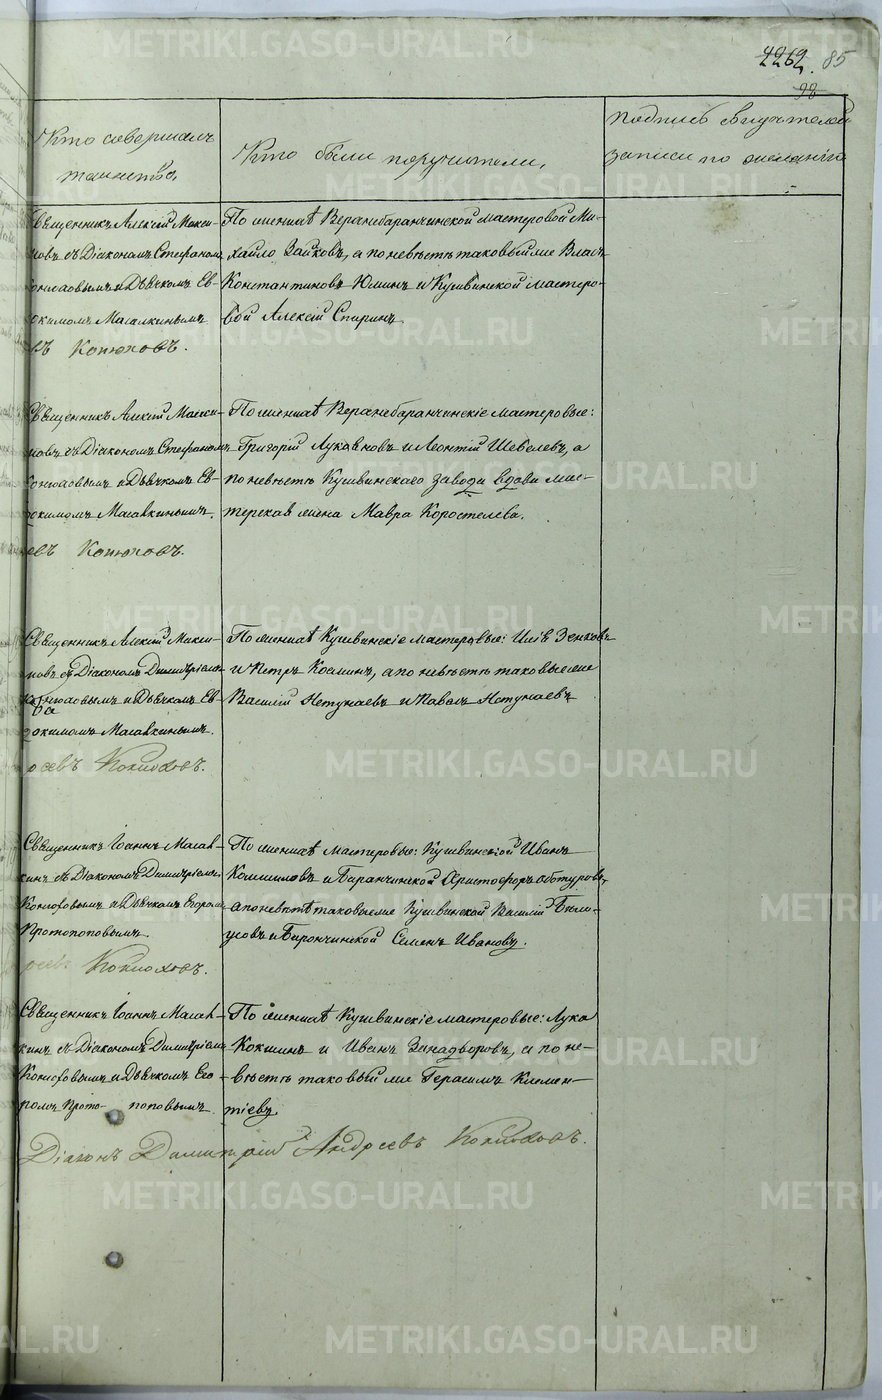 4262. 85
98
Кто совершалъ
таинство,
Кто были поручители,
Подпись свидѣтелей
записи по желанію
Священникъ Алексій Макси-
мовъ съ Діакономъ Стефаномъ
Конюховымъ и Дьячкомъ Ев-
докимомъ Масалкинымъ
въ Конюховъ.
По женихѣ Верхнебаранчинской мастеровой Ми-
хайло Зайковъ, а по невѣстѣ таковый же Власъ
Константиновъ Юминъ и Кушвинской мастеро-
вой Алексій Спиринъ
Священникъ Алексій Макси-
мовъ съ Діакономъ Стефаномъ
Конюховымъ и Дьячкомъ Ев-
докимомъ Масалкинымъ.
евъ Конюховъ.
По женихѣ Верхнебаранчинскіе мастеровые:
Григорій Лукановъ и Леонтій Шевелевъ, а
по невѣстѣ Кушвинскаго завода вдова мас-
терская жена Мавра Коростелева.
Священникъ Алексій Макси-
мовъ съ Діакономъ Димитріемъ
Конюховымъ и Дьячкомъ Ев-
докимомъ Масалкинымъ.
реевъ Конюховъ.
По женихѣ Кушвинскіе мастеровые: Илія Зенковъ
и Петръ Косминъ, а по невѣстѣ таковые же
Василій Нетунаевъ и Павелъ Нетунаевъ
Священникъ Іоаннъ Масал-
кинъ съ Діакономъ Димитріемъ
Конюховымъ и Дьячкомъ Егоромъ
Протопоповымъ.
реевъ Конюховъ.
По женихѣ мастеровые: Кушвинскій Иванъ
и Баранчинской Христофоръ
а по невѣстѣ таковые же Кушвинской Василій Бѣло-
усовъ и Баранчинской Семенъ Ивановъ.
Священникъ Іоаннъ Масал-
кинъ съ Діакономъ Димитріемъ
Конюховымъ и Дьячкомъ Его-
ромъ Прото- поповымъ.
По женихѣ Кушвинскіе мастеровые: Лука
Кокшинъ и Иванъ Винадворовъ, а по не-
вѣстѣ таковый же Герасимъ Климен-
тіевъ
Діаконъ Димитрій Андреевъ Конюховъ.
METRIKI.GASO-URAL.RU